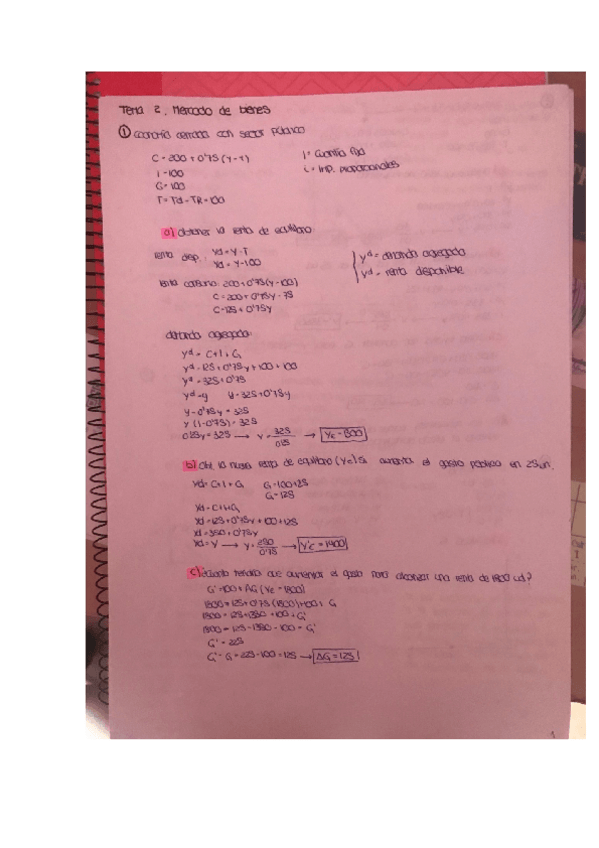 Tema 2. Mercado de bienes
① Economía cerrada con sector público
C = 200 + 0'75 (Y-T)
I = cuantía fija
I = 100
t = imp. proporcionales
G = 100
T = Td - TR = 100
a) Obtener la renta de equilibrio
renta disp.: Yd = Y - T
Yd = Y - 100
yd = demanda agregada
yd = renta disponible
200 + 0'75 (Y - 100)
C = 200 + 0'75y - 75
C = 125 + 0'75y
demanda agregada:
yd = C + I + G
yd = 125 + 0'75y + 100 + 100
yd = 325 + 0'75
yd = y y = 325 + 0'75y
y - 0'75y = 325
y (1 - 0'75) = 325
0'25y = 325 → y = 325/0'25 → Ye = 1300
b) Obt. la nueva renta de equilibrio (Ye) si aumenta el gasto público en 25 un.
yd = C + I + G G = 100 + 25
G = 125
yd = C + I + G
yd = 125 + 0'75y + 100 + 125
yd = 350 + 0'75y
yd = y → y = → Y'e = 1400
c) ¿cuánto tendría que aumentar el gasto para alcanzar una renta de 1800 ud?
G' = 100 + ΔG (Ye = 1800)
1800 = 125 + 0'75 (1800) + 100 + G
1800 = 125 + 1350 + 100 + G'
1800 - 125 - 1350 - 100 = G'
G' = 225
G' - G = 225 - 100 = 125 → ΔG = 125
1